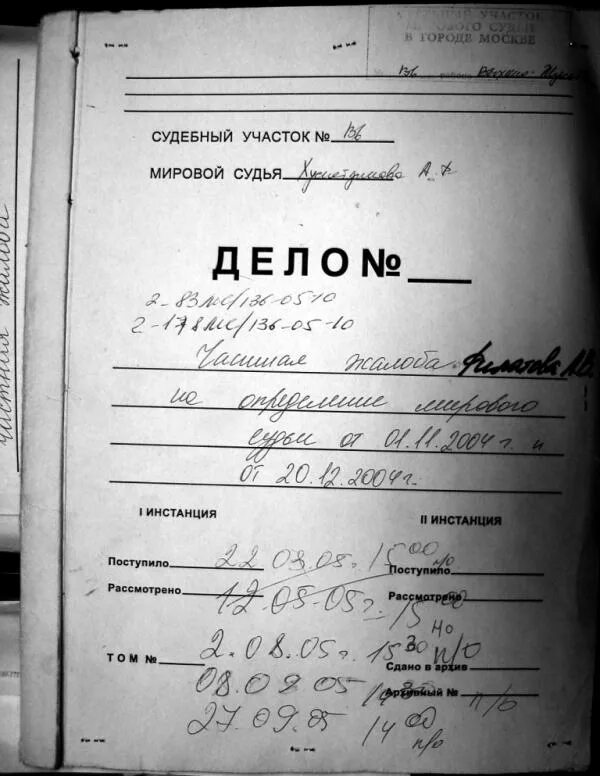 СУДЕБНЫЙ УЧАСТОК
МИРОВОГО СУДЬИ
В ГОРОДЕ МОСКВЕ
136 района
СУДЕБНЫЙ УЧАСТОК № 136
МИРОВОЙ СУДЬЯ А. Ф
ДЕЛО №
2-83МС/136-05-10
2-178МС/136-05-10
Частная жалоба Филатова
на определение мирового
судьи от 01.11.2004 г. и
от 20.12.2004 г.
I ИНСТАНЦИЯ
II ИНСТАНЦИЯ
Поступило 22 03.05г. 15 00 п/о
Поступило
Рассмотрено 12.05.05г. 15 00
Рассмотрено
ТОМ № 2.08.05г. 15 30 п/о
Сдано в архив
08.09.05
Архивный № п/о
27.09.05 14 00
п/о
частная жалоба